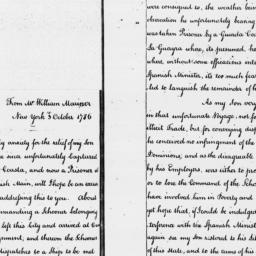 From Mr William Mauxser
New York 3 October 1786
y anxiety for the relief of my Son
e was unfortunately Captured
Coasta, and now a Prisoner of
nish Main, will I hope be an excuse
addressing this to you. About
mmanding a Schooner belonging
left this City and arrived at
gnment, and thereon the Schooner
dispatches to a Ship to be
were consigned to, the weather being
observation he unfortunately bearing
was taken Prisoner by a Guarda Cos
La Guayra where, its presumed, he
where, without some efficacious inter
Spanish Minister, its too much fear
led to languish the remainder of h
As my Son very
in that unfortunate Voyage, not for
illicit Trade, but for conveying disp
he conceived no infringement of the
Dominions, and as the disagreeable
by his Employers, was either to pro
or to lose the Command of the Schoo
have involved him in Poverty and
yet hope that, if I could be indulged
terference with the Spanish Minist
again see my Son restored to his Lib
of this State, and to the arms of his